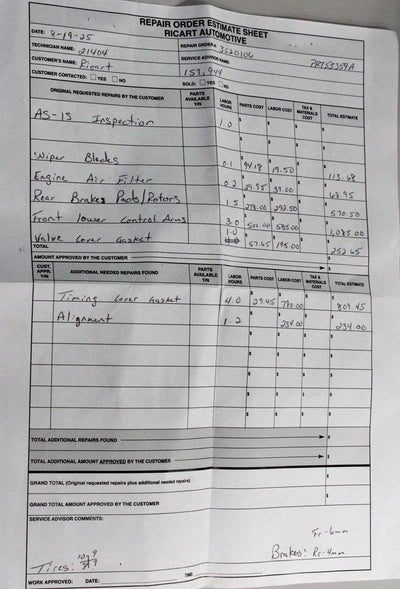 REPAIR ORDER ESTIMATE SHEET
RICART AUTOMOTIVE
DATE: 8-19-25
TECHNICIAN NAME: 21404 REPAIR ORDER# 3520106
CUSTOMER'S NAME: Ricart SERVICE ADVISOR NAME:
CUSTOMER CONTACTED: YES NO 153,944
SOLD: YES NO
ORIGINAL REQUESTED REPAIRS BY THE CUSTOMER PARTS AVAILABLE Y/N LABOR HOURS PARTS COST LABOR COST TAX & MATERIALS COST TOTAL ESTIMATE
AS-IS Inspection 1.0
Wiper Blades 0.1 94.18 19.50 113.68
Engine Air Filter 0.2 29.95 39.00 68.95
Rear Brakes Pads/Rotors 1.5 278.00 292.50 570.50
Front lower Control Arms 3.0 500.00 585.00 1,085.00
Valve Cover Gasket 1.0 57.65 195.00 252.65
TOTAL
AMOUNT APPROVED BY THE CUSTOMER
CUST. APPR. Y/N ADDITIONAL NEEDED REPAIRS FOUND PARTS AVAILABLE Y/N LABOR HOURS PARTS COST LABOR COST TAX & MATERIALS COST TOTAL ESTIMATE
Timing Cover Gasket 4.0 29.45 780.00 809.45
Alignment 1.2 234.00 234.00
TOTAL ADDITIONAL REPAIRS FOUND
TOTAL ADDITIONAL AMOUNT APPROVED BY THE CUSTOMER
GRAND TOTAL (Original requested repairs plus additional needed repairs)
GRAND TOTAL AMOUNT APPROVED BY THE CUSTOMER
SERVICE ADVISOR COMMENTS:
Fr-6mm
Tires: Brakes: Rr-4mm
WORK APPROVED: DATE: TIME: